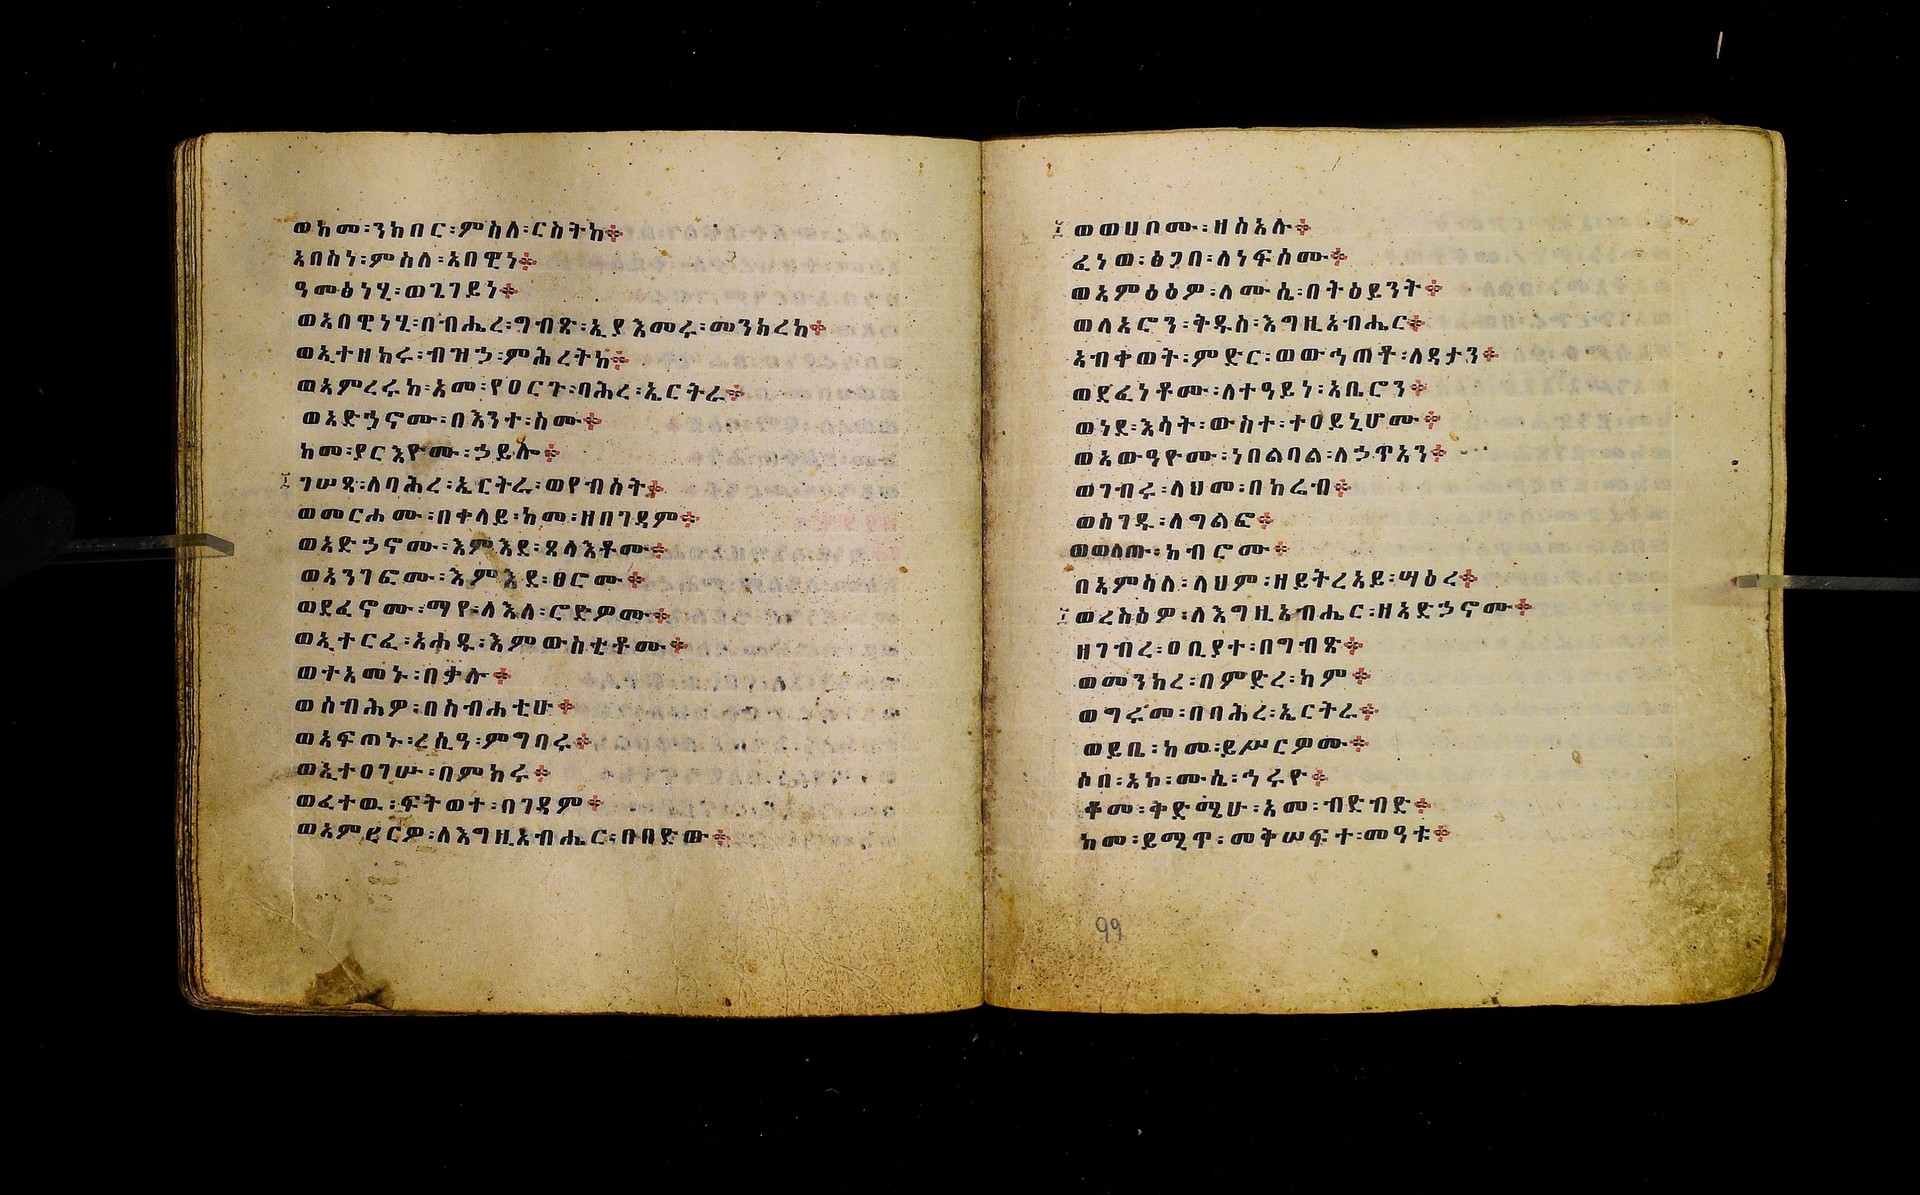 ወከመ፡ንክበር፡ምስለ፡ርስትከ፨
አበስነ፡ምስለ፡አበዊነ፨
ዓመፅነሂ፡ወጌገይነ፨
ወአበዊነሂ፡በብሔረ፡ግብጽ፡ኢያእመሩ፡መንክረከ፨
ወኢተዘከሩ፡ብዝኃ፡ምሕረትከ፨
ወአምረሩከ፡አመ፡የዐርጉ፡ባሕረ፡ኤርትራ፨
ወአድኃኖሙ፡በእንተ፡ስሙ፨
ከመ፡ያርእዮሙ፡ኃይሎ፨
፲ ገሠጻ፡ለባሕረ፡ኤርትራ፡ወየብሰት፨
ወመርሖሙ፡በቀላይ፡ከመ፡ዘበገዳም፨
ወአድኃኖሙ፡እምእደ፡ጸላእቶሙ፨
ወአንገፎሙ፡እምእደ፡ፀሮሙ፨
ወደፈኖሙ፡ማየ፡ለእለ፡ሮድዎሙ፨
ወኢተርፈ፡አሐዱ፡እምውስቴቶሙ፨
ወተአመኑ፡በቃሉ፨
ወሰብሕዎ፡በስብሐቲሁ፨
ወአፍጠኑ፡ረሲዓ፡ምግባሩ፨
ወኢተዐገሡ፡በምክሩ፨
ወፈተዉ፡ፍትወተ፡በገዳም፨
ወአምረርዎ፡ለእግዚአብሔር፡በበድው፨
፲ ወወሀቦሙ፡ዘሰአሉ፨
ፈነወ፡ፅጋበ፡ለነፍሰሙ፨
ወአምዕዕዎ፡ለሙሴ፡በትዕይንት፨
ወለአሮን፡ቅዱስ፡እግዚአብሔር፨
አብቀወት፡ምድር፡ወውኅጠቶ፡ለዳታን፨
ወደፈነቶሙ፡ለተዓይነ፡አቤሮን፨
ወነደ፡እሳት፡ውስተ፡ተዐይኒሆሙ፨
ወአውዓዮሙ፡ነበልባል፡ለኃጥአን፨
ወገብሩ፡ላህመ፡በኮሬብ፨
ወሰገዱ፡ለግልፎ፨
ወወለጡ፡ክብሮሙ፨
በአምሳለ፡ላህም፡ዘይትረአይ፡ሣዕረ፨
፲ ወረስዕዎ፡ለእግዚአብሔር፡ዘአድኃኖሙ፨
ዘገብረ፡ዐቢያተ፡በግብጽ፨
ወመንክረ፡በምድረ፡ካም፨
ወግሩመ፡በባሕረ፡ኤርትራ፨
ወይቤ፡ከመ፡ይሥርዎሙ፨
ሶበ፡አኮ፡ሙሴ፡ኅሩዮ፨
ቆመ፡ቅድሜሁ፡አመ፡ብድብድ፨
ከመ፡ይሚጥ፡መቅሠፍተ፡መዓቱ፨
99